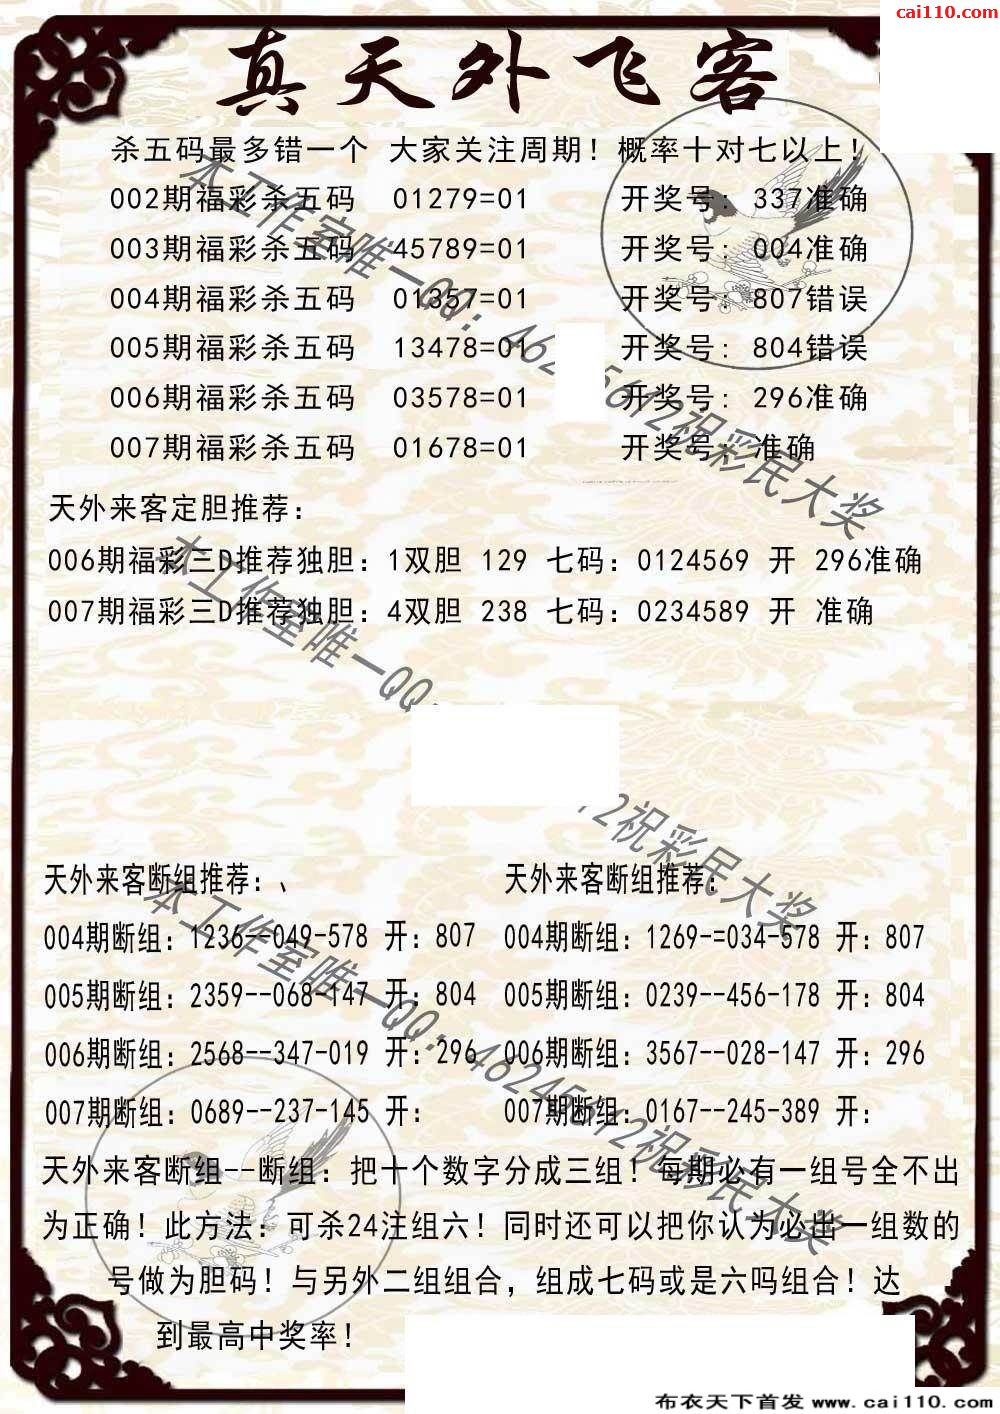 cai110.com
真天外飞客
杀五码最多错一个 大家关注周期！概率十对七以上！
002期福彩杀五码 01279=01 开奖号：337准确
003期福彩杀五码 45789=01 开奖号：004准确
004期福彩杀五码 01357=01 开奖号：807错误
005期福彩杀五码 13478=01 开奖号：804错误
006期福彩杀五码 03578=01 开奖号：296准确
007期福彩杀五码 01678=01 开奖号：准确
天外来客定胆推荐：
006期福彩三D推荐独胆：1双胆 129 七码：0124569 开 296准确
007期福彩三D推荐独胆：4双胆 238 七码：0234589 开 准确
天外来客断组推荐：、
004期断组：1236--049-578 开：807
005期断组：2359--068-147 开：804
006期断组：2568--347-019 开：296
007期断组：0689--237-145 开：
天外来客断组推荐：
004期断组：1269-=034-578 开：807
005期断组：0239--456-178 开：804
006期断组：3567--028-147 开：296
007期断组：0167--245-389 开：
天外来客断组--断组：把十个数字分成三组！每期必有一组号全不出
为正确！此方法：可杀24注组六！同时还可以把你认为必出一组数的
号做为胆码！与另外二组组合，组成七码或是六吗组合！达
到最高中奖率！
本工作室唯一QQ：46245612祝彩民大奖
本工作室唯一QQ：12祝彩民大奖
本工作室唯一QQ：46245612祝彩民大奖
布衣天下首发 www.cai110.com